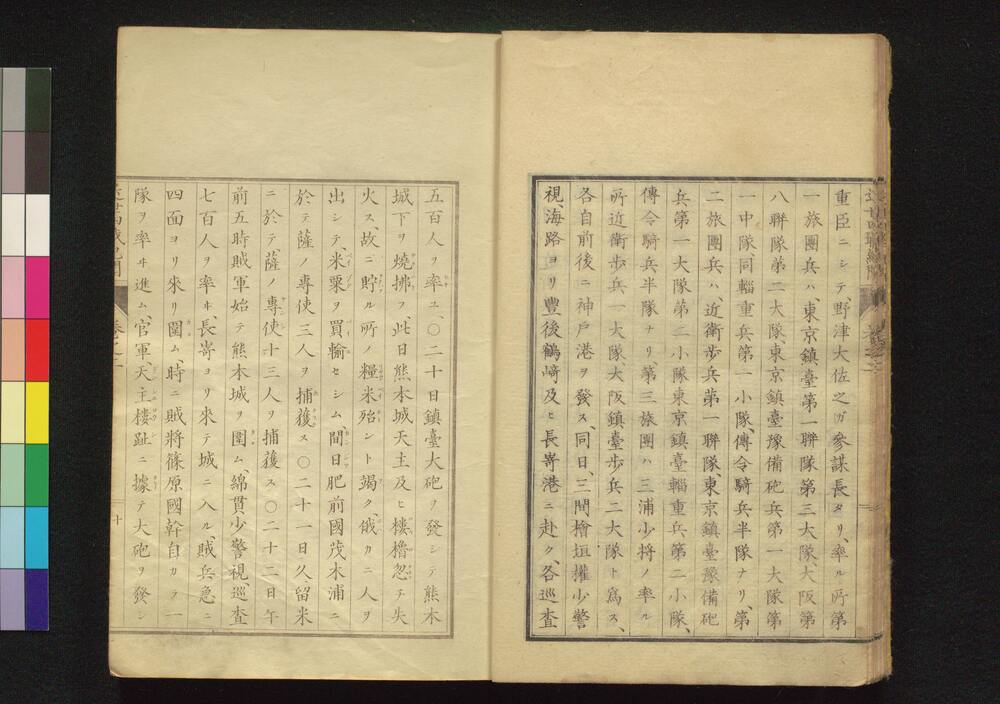 重臣ニシテ、野津大佐之ガ參謀長タリ、率ル所第
一旅團兵ハ、東京鎮臺第一聯隊第三大隊、大阪第
八聯隊第二大隊、東京鎮臺豫備砲兵第一大隊第
一中隊、同輜重兵第一小隊、傳令騎兵半隊ナリ、第
二旅團兵ハ、近衛歩兵第一聯隊、東京鎮臺豫備砲
兵第一大隊第二小隊東京鎮臺輜重兵第二小隊、
傳令騎兵半隊ナリ、第三旅團ハ三浦少將ノ率ル
所近衛歩兵一大隊、大阪鎮臺歩兵二大隊ト爲ス、
各自前後ニ神戸港ヲ發ス、同日、三間檜垣權少警
視、海路ヨリ豐後鶴﨑及ヒ長嵜港ニ赴ク、各巡査
五百人ヲ率ユ、〇二十日鎮臺大砲ヲ發シテ熊本
城下ヲ燒拂フ、此日熊本城天主及ヒ樓櫓忽チ失
火ス、故ニ貯ル所ノ糧米殆ント竭ク、俄カニ人ヲ
出シテ、米粟ヲ買輸セシム、間日肥前國茂木浦ニ
於テ薩ノ專使三人ヲ捕獲ス〇二十一日久留米
ニ於テ、薩ノ專使十三人ヲ捕獲ス〇二十二日午
前五時賊軍始テ熊本城ヲ圍ム、綿貫少警視、巡査
七百人ヲ率ヰ、長嵜ヨリ來テ城ニ入ル、賊兵急ニ
四面ヨリ來リ圍ム、時ニ賊將篠原國幹自カラ一
隊ヲ率ヰ進ム、官軍、天主樓趾ニ據テ大砲ヲ發シ
十